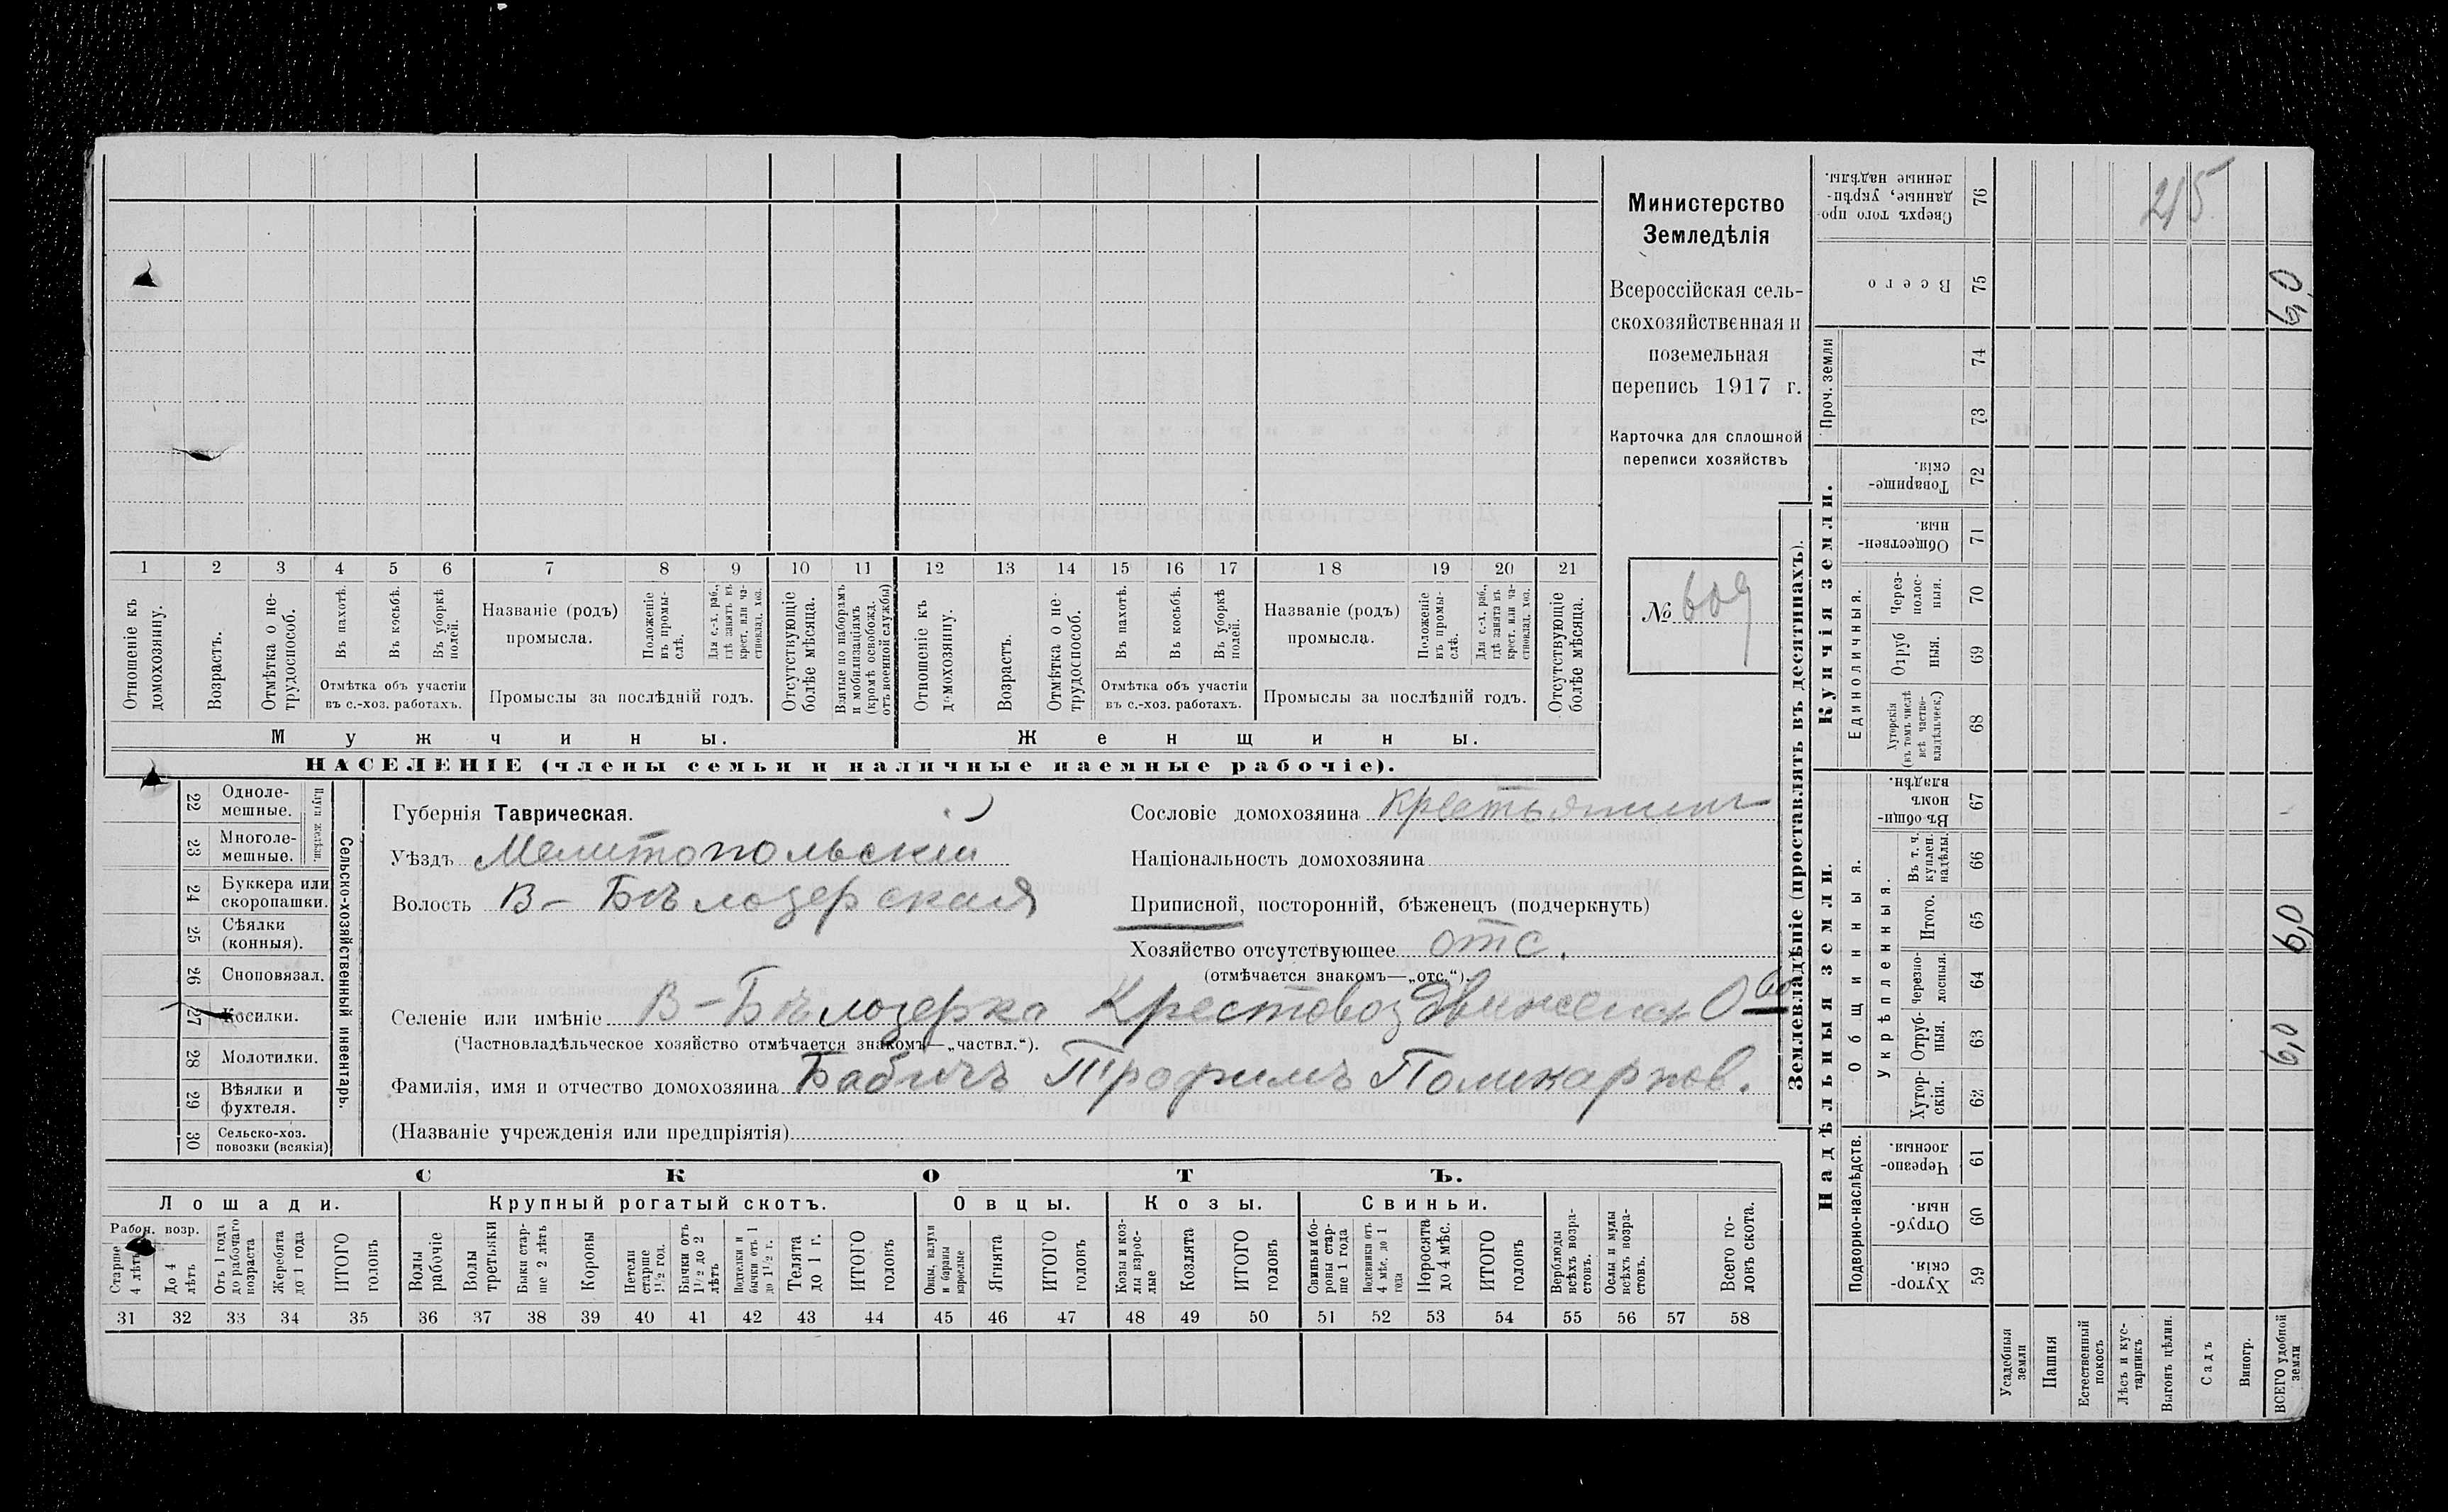 1 2 3 4 5 6 7 8 9 10 11 12 13 14 15 16 17 18 19 20 21
Отношеніе къ домохозяину.
Возрастъ.
Отмѣтка о не-
трудоспособ.
Въ пахотѣ.
Въ косьбѣ.
Въ уборкѣ полей.
Отмѣтка объ участіи
въ с.-хоз. работахъ.
Названіе (родъ)
промысла.
Положеніе въ промы-
слѣ.
Для с.-х. раб., гдѣ занятъ въ крест. или ча-
стновлад. хоз.
Промыслы за послѣдній годъ.
Отсутствующіе болѣе мѣсяца.
Взятые по наборамъ и мобилизаціямъ (кромѣ освобожд. отъ военной службы)
Отношеніе къ домохозяину.
Возрастъ.
Отмѣтка о не-
трудоспособ.
Въ пахотѣ.
Въ косьбѣ.
Въ уборкѣ полей.
Отмѣтка объ участіи
въ с.-хоз. работахъ.
Названіе (родъ)
промысла.
Положеніе въ промы-
слѣ.
Для с.-х. раб., гдѣ занята въ крест. или ча-
стновлад. хоз.
Промыслы за послѣдній годъ.
Отсутствующіе болѣе мѣсяца.
Мужчины. Женщины.
НАСЕЛЕНІЕ (члены семьи и наличные наемные рабочіе).
Министерство
Земледѣлія
Всероссійская сель-
скохозяйственная и
поземельная
перепись 1917 г.
Карточка для сплошной
переписи хозяйствъ
№ 609
22 Одноле-
мешные.
23 Многоле-
мешные.
Плуги желѣзн.
24 Буккера или
скоропашки.
25 Сѣялки
(конныя).
26 Сноповязал.
27 Косилки.
28 Молотилки.
29 Вѣялки и
фухтеля.
30 Сельско-хоз.
повозки (всякія)
Сельско-хозяйственный инвентарь.
Губернія Таврическая.
Уѣздъ Мелитопольскій
Волость В-Бѣлозерская
Сословіе домохозяина крестьянинъ
Національность домохозяина
Приписной, посторонній, бѣженецъ (подчеркнуть)
Хозяйство отсутствующее отс.
(отмѣчается знакомъ—„отс.“).
Селеніе или имѣніе В-Бѣлозерка Крестовоздвижен Обо
(Частновладѣльческое хозяйство отмѣчается знакомъ—„частвл.“).
Фамилія, имя и отчество домохозяина Бабичъ Трофимъ Поликарпов.
(Названіе учрежденія или предпріятія)
СКОТЪ.
Лошади. Крупный рогатый скотъ. Овцы. Козы. Свиньи.
Рабоч. возр.
Старше 4 лѣтъ
До 4 лѣтъ
Отъ 1 года до рабочаго возраста
Жеребята до 1 года
ИТОГО головъ
Волы рабочіе
Волы третьяки
Быки стар-
ше 2 лѣтъ
Коровы
Нетели старше 1½ год.
Бычки отъ 1½ до 2 лѣтъ
Подтелки и бычки отъ 1 до 1½ г.
Телята до 1 г.
ИТОГО головъ
Овцы, валухи и бараны взрослые
Ягнята
ИТОГО головъ
Козы и коз-
лы взрос-
лые
Козлята
ИТОГО головъ
Свиньи и бо-
ровы стар-
ше 1 года
Подсвинки отъ 4 мѣс. до 1 года
Поросята до 4 мѣс.
ИТОГО головъ
Верблюды всѣхъ возра-
стовъ.
Ослы и мулы всѣхъ возра-
стовъ.
Всего го-
ловъ скота.
31 32 33 34 35 36 37 38 39 40 41 42 43 44 45 46 47 48 49 50 51 52 53 54 55 56 57 58
Землевладѣніе (проставлять въ десятинахъ).
Надѣльныя земли.
Купчія земли.
Проч. земли
Подворно-наслѣдств.
Общинныя.
Укрѣпленныя.
Единоличныя.
Хутор-
скія. 59
Отруб-
ныя. 60
Черезпо-
лосныя 61
Хутор-
скія. 62
Отруб-
ныя. 63
Черезпо-
лосныя. 64
Итого. 65
Въ т. ч. куплен. надѣлы. 66
Въ общи-
номъ владѣн. 67
Хуторскія (въ томъ числѣ всѣ частно-
владѣльческ.) 68
Отруб
ныя. 69
Через-
полос-
ныя. 70
Обществен-
ныя. 71
Товарище-
скія. 72
73
74
Всего 75
Сверхъ того про-
данные, укрѣп-
ленные надѣлы. 76
Усадебныя земли
Пашня
Естественный покосъ
Лѣсъ и кус-
тарникъ
Выгонъ цѣлин.
Садъ
Виногр.
ВСЕГО удобной земли
6,0
6,0
6,0
215